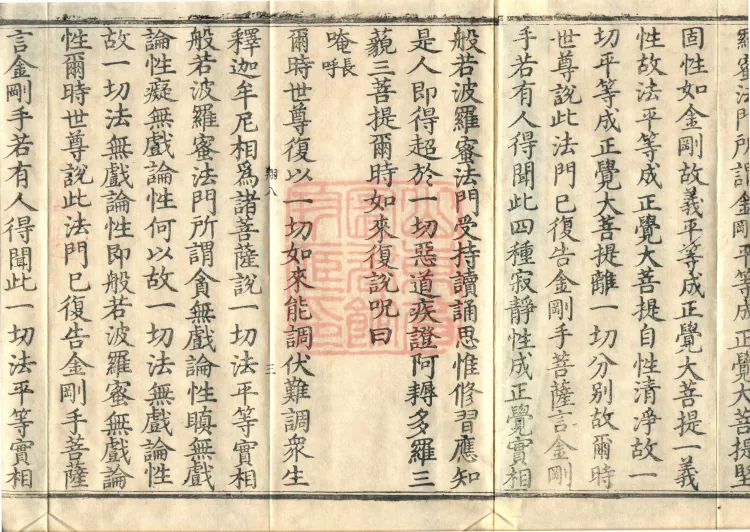 羅蜜法門所謂金剛平等成正覺大菩提堅
固性如金剛故義平等成正覺大菩提一義
性故法平等成正覺大菩提自性清淨故一
切平等成正覺大菩提離一切分別故爾時
世尊說此法門已復告金剛手菩薩言金剛
手若有人得聞此四種寂靜性成正覺實相
般若波羅蜜法門受持讀誦思惟修習應知
是人即得超於一切惡道疾證阿耨多羅三
藐三菩提爾時如來復說呪曰
唵長呼
爾時世尊復以一切如來能調伏難調衆生
翔八 三
釋迦牟尼相爲諸菩薩說一切法平等實相
般若波羅蜜法門所謂貪無戲論性瞋無戲
論性癡無戲論性何以故一切法無戲論性
故一切法無戲論性即般若波羅蜜無戲論
性爾時世尊說此法門已復告金剛手菩薩
言金剛手若有人得聞此一切法平等實相